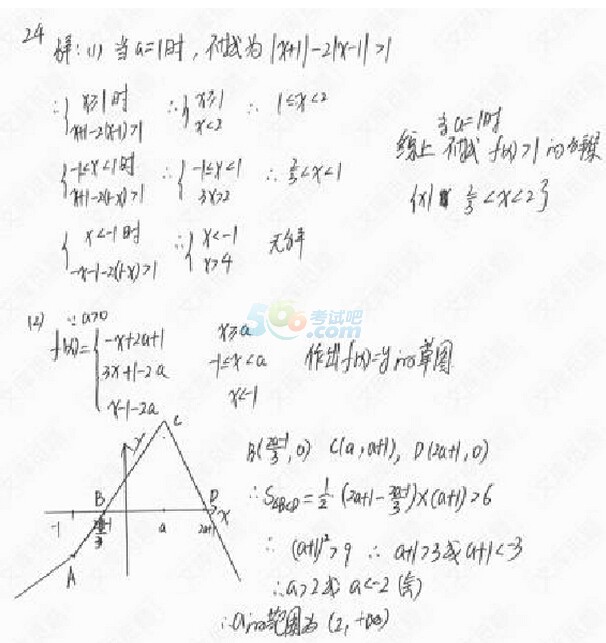 24 解:(1) 当a=1时,不等式为 |x+1|-2|x-1|>1
∴{x≥1时 x+1-2(x-1)>1 ∴{x≥1 x<2 ∴ 1≤x<2
{-1≤x<1时 x+1-2(1-x)>1 ∴{-1≤x<1 3x>2 ∴ 2/3<x<1
{x<-1时 -x-1-2(1-x)>1 ∴{x<-1 x>4 无解
当a=1时
综上 不等式 f(x)>1 的解集
{x| 2/3<x<2}
(2) ∵a>0
f(x)={-x+2a+1 x≥a
3x+1-2a -1≤x<a
x-1-2a x<-1
作出f(x)=y的草图
y C
B D x
-1 (2a-1)/3 a 2a+1
A
B((2a-1)/3,0) C(a,a+1), D(2a+1,0)
∴S△BCD=1/2(2a+1-(2a-1)/3)×(a+1)>6
∴ (a+1)²>9 ∴ a+1>3或a+1<-3
∴a>2或a<-2(舍)
∴a的范围为(2,+∞)
566考试吧